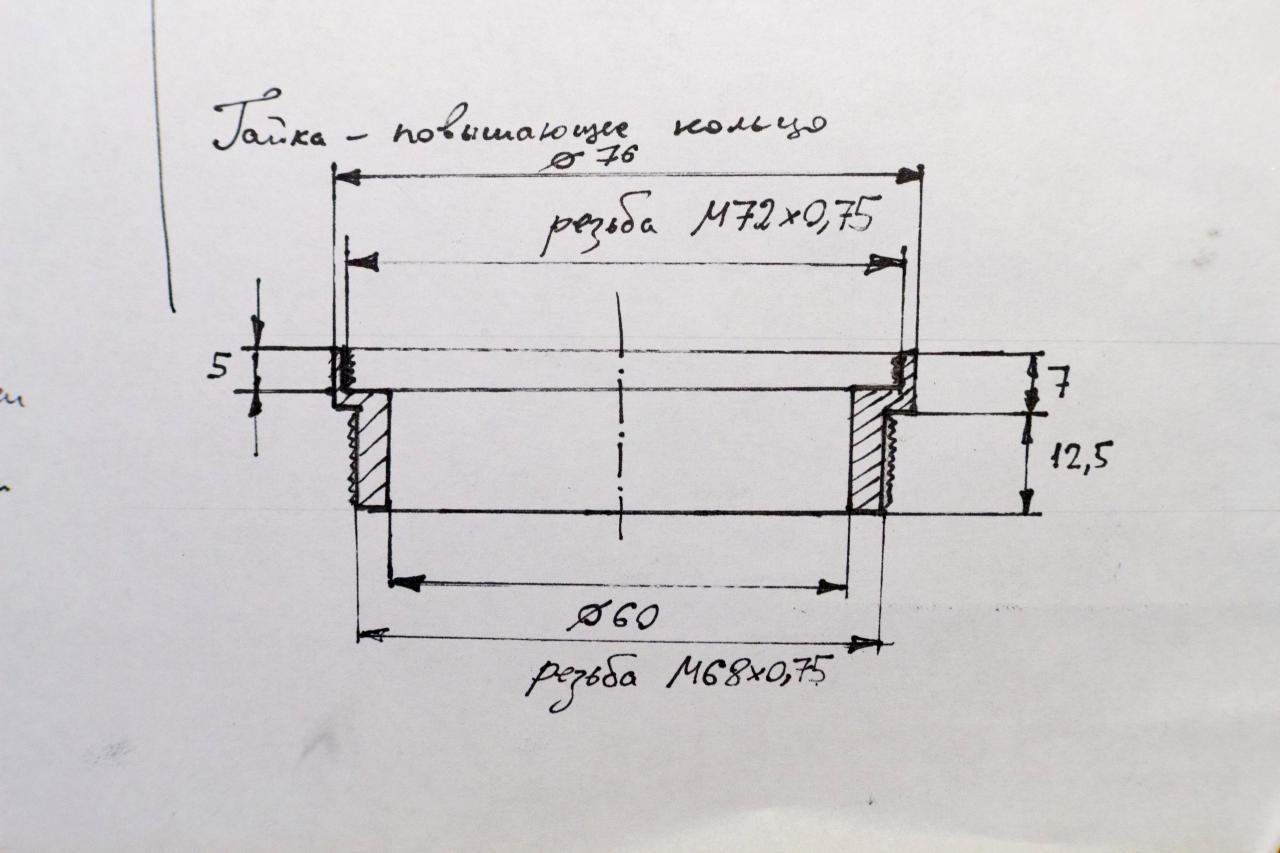 Гайка - повышающее кольцо
ø 76
резьба М72×0,75
5
7
12,5
ø60
резьба М68×0,75